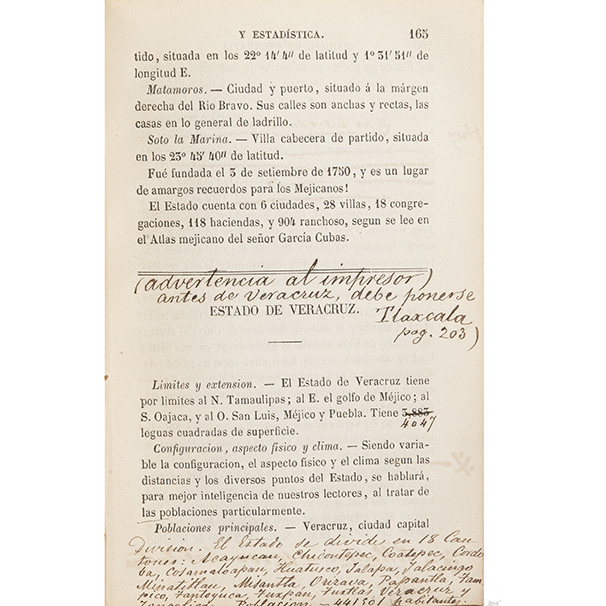 Y ESTADÍSTICA. 165
tido, situada en los 22º 14′ 4″ de latitud y 1º 31′ 51″ de
longitud E.
Matamoros. — Ciudad y puerto, situado á la márgen
derecha del Rio Bravo. Sus calles son anchas y rectas, las
casas en lo general de ladrillo.
Soto la Marina. — Villa cabecera de partido, situada
en los 23º 45′ 40″ de latitud.
Fué fundada el 3 de setiembre de 1750, y es un lugar
de amargos recuerdos para los Mejicanos!
El Estado cuenta con 6 ciudades, 28 villas, 18 congre-
gaciones, 118 haciendas, y 904 ranchoso, segun se lee en
el Atlas mejicano del señor García Cubas.
(advertencia al impresor)
antes de Veracruz, debe ponerse
Tlaxcala
pag. 203)
ESTADO DE VERACRUZ.
Limites y extension. — El Estado de Veracruz tiene
por límites al N. Tamaulipas; al E. el golfo de Méjico; al
S. Oajaca, y al O. San Luis, Méjico y Puebla. Tiene 3,883
4047
leguas cuadradas de superficie.
Configuracion, aspecto fisico y clima. — Siendo varia-
ble la configuracion, el aspecto físico y el clima segun las
distancias y los diversos puntos del Estado, se hablará,
para mejor inteligencia de nuestros lectores, al tratar de
las poblaciones particularmente.
Poblaciones principales. — Veracruz, ciudad capital
Division. El Estado se divide en 18 Can-
tones: Acayucan, Chicontepec, Coatepec, Cordo-
ba, Cosamaloapan, Huatusco, Jalapa, Jalacingo
Minatitlan, Misantla, Orizava, Papantla, Tam
pico, Tantoyuca, Tuxpan, Tuxtlas Veracruz y
Poblacion — 441501 habitantes.